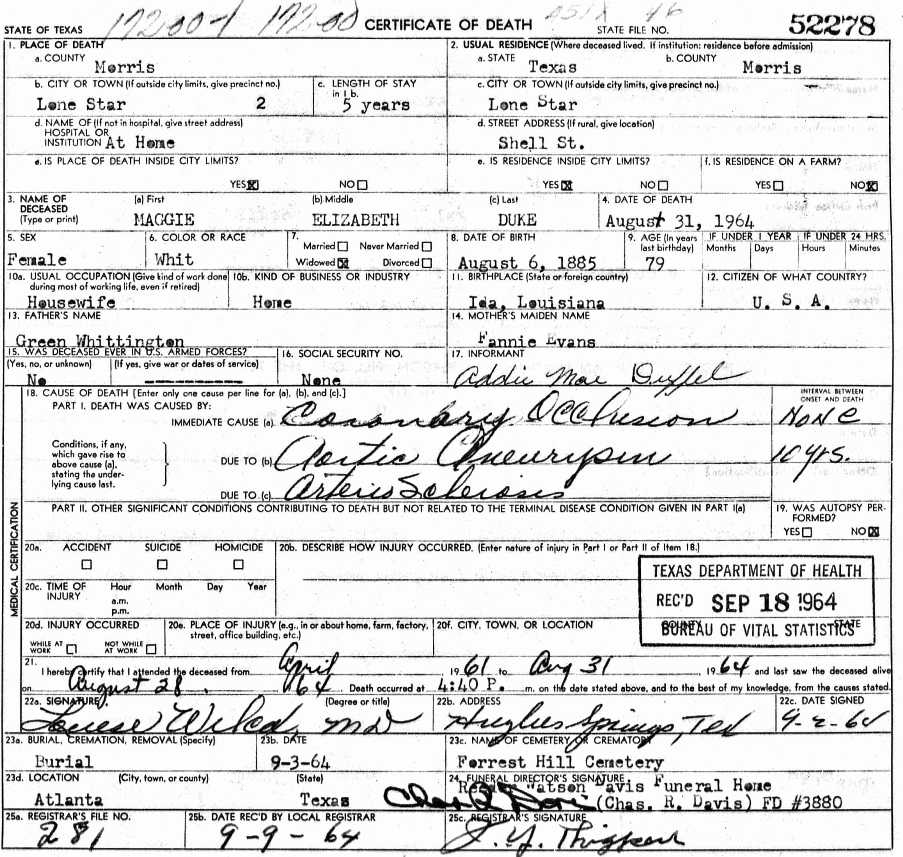 172.00-1 172.00
STATE OF TEXAS CERTIFICATE OF DEATH STATE FILE NO. 52278
1. PLACE OF DEATH
a. COUNTY
Morris
2. USUAL RESIDENCE (Where deceased lived. If institution: residence before admission)
a. STATE b. COUNTY
Texas Morris
b. CITY OR TOWN (If outside city limits, give precinct no.)
Lone Star 2
c. LENGTH OF STAY in 1 b.
5 years
c. CITY OR TOWN (If outside city limits, give precinct no.)
Lone Star
d. NAME OF (If not in hospital, give street address)
HOSPITAL OR
INSTITUTION At Home
d. STREET ADDRESS (If rural, give location)
Shell St.
e. IS PLACE OF DEATH INSIDE CITY LIMITS?
YES☒ NO☐
e. IS RESIDENCE INSIDE CITY LIMITS?
YES☒ NO☐
f. IS RESIDENCE ON A FARM?
YES☐ NO☒
3. NAME OF DECEASED (Type or print)
(a) First (b) Middle (c) Last
MAGGIE ELIZABETH DUKE
4. DATE OF DEATH
August 31, 1964
5. SEX
Female
6. COLOR OR RACE
Whit
7.
Married☐ Never Married☐
Widowed☒ Divorced☐
8. DATE OF BIRTH
August 6, 1885
9. AGE (In years last birthday)
79
IF UNDER 1 YEAR
Months Days
IF UNDER 24 HRS.
Hours Minutes
10a. USUAL OCCUPATION (Give kind of work done during most of working life, even if retired)
Housewife
10b. KIND OF BUSINESS OR INDUSTRY
Home
11. BIRTHPLACE (State or foreign country)
Ida, Louisiana
12. CITIZEN OF WHAT COUNTRY?
U. S. A.
13. FATHER'S NAME
Green Whittington
14. MOTHER'S MAIDEN NAME
Fannie Evans
15. WAS DECEASED EVER IN U.S. ARMED FORCES?
(Yes, no, or unknown) (If yes, give war or dates of service)
No ----------
16. SOCIAL SECURITY NO.
None
17. INFORMANT
Addie Mae Duffel
MEDICAL CERTIFICATION
18. CAUSE OF DEATH [Enter only one cause per line for (a), (b), and (c).]
PART I. DEATH WAS CAUSED BY:
INTERVAL BETWEEN ONSET AND DEATH
IMMEDIATE CAUSE (a) Coronary Occlusion None
Conditions, if any, which gave rise to above cause (a), stating the underlying cause last.
DUE TO (b) Aortic Aneurysm 10 yrs.
DUE TO (c) Arterio Sclerosis
PART II. OTHER SIGNIFICANT CONDITIONS CONTRIBUTING TO DEATH BUT NOT RELATED TO THE TERMINAL DISEASE CONDITION GIVEN IN PART I(a)
19. WAS AUTOPSY PERFORMED?
YES☐ NO☒
20a. ACCIDENT SUICIDE HOMICIDE
☐ ☐ ☐
20b. DESCRIBE HOW INJURY OCCURRED. (Enter nature of injury in Part I or Part II of Item 18.)
20c. TIME OF INJURY
Hour Month Day Year
a.m.
p.m.
TEXAS DEPARTMENT OF HEALTH
REC'D SEP 18 1964
BUREAU OF VITAL STATISTICS
20d. INJURY OCCURRED
WHILE AT WORK ☐ NOT WHILE AT WORK ☐
20e. PLACE OF INJURY (e.g., in or about home, farm, factory, street, office building, etc.)
20f. CITY, TOWN, OR LOCATION COUNTY STATE
21.
I hereby certify that I attended the deceased from April 1961 to Aug 31 1964 and last saw the deceased alive
on August 28, 1964 Death occurred at 4:40 P. m. on the date stated above, and to the best of my knowledge, from the causes stated.
22a. SIGNATURE (Degree or title)
MD
22b. ADDRESS
Hughes Springs, Tex
22c. DATE SIGNED
9-2-64
23a. BURIAL, CREMATION, REMOVAL (Specify)
Burial
23b. DATE
9-3-64
23c. NAME OF CEMETERY OR CREMATORY
Forrest Hill Cemetery
23d. LOCATION (City, town, or county) (State)
Atlanta Texas
24. FUNERAL DIRECTOR'S SIGNATURE
Watson Davis Funeral Home
Chas R Davis (Chas. R. Davis) FD #3880
25a. REGISTRAR'S FILE NO.
281
25b. DATE REC'D BY LOCAL REGISTRAR
9-9-64
25c. REGISTRAR'S SIGNATURE
J. Y. Thigpen